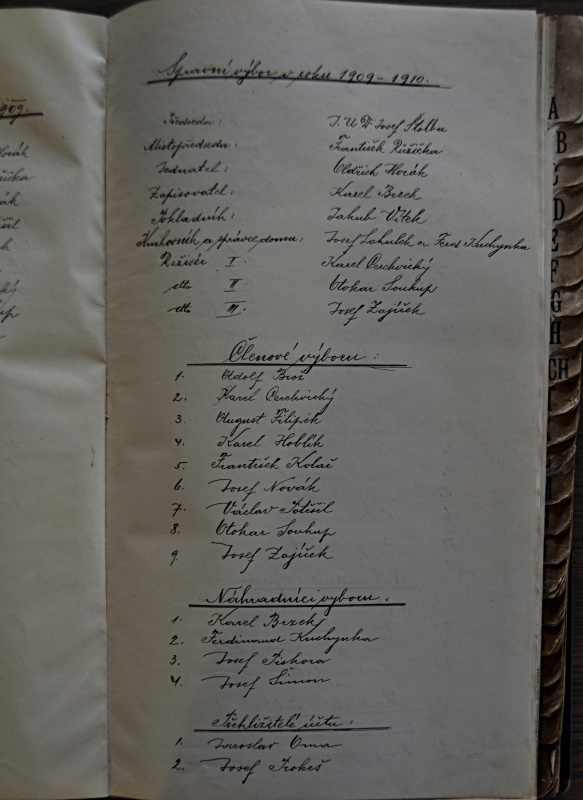 Správní výbor v roku 1909-1910.
Předseda: J.U.Dr Josef Štolba
Místopředseda: František Růžička
Jednatel: Oldřich Horák
Zapisovatel: Karel Brzek
Pokladník: Jakub Vítek
Knihovník a správce domu: Josef Lahulek a Ferd. Kuchynka
Režisér I. Karel Cerhvický
dtto II Otokar Soukup
dtto III. Josef Zajíček
Členové výboru:
1. Adolf Brož
2. Karel Cerhvický
3. August Filípek
4. Karel Hoblík
5. František Kolář
6. Josef Novák
7. Václav Potěšil
8. Otokar Soukup
9. Josef Zajíček
Náhradníci výboru:
1. Karel Brzek
2. Ferdinand Kuchynka
3. Josef Piskora
4. Josef Šimon
Přehlížitelé účtů:
1. Jaroslav
2. Josef
A
B
C
D
E
F
G
H
CH
I